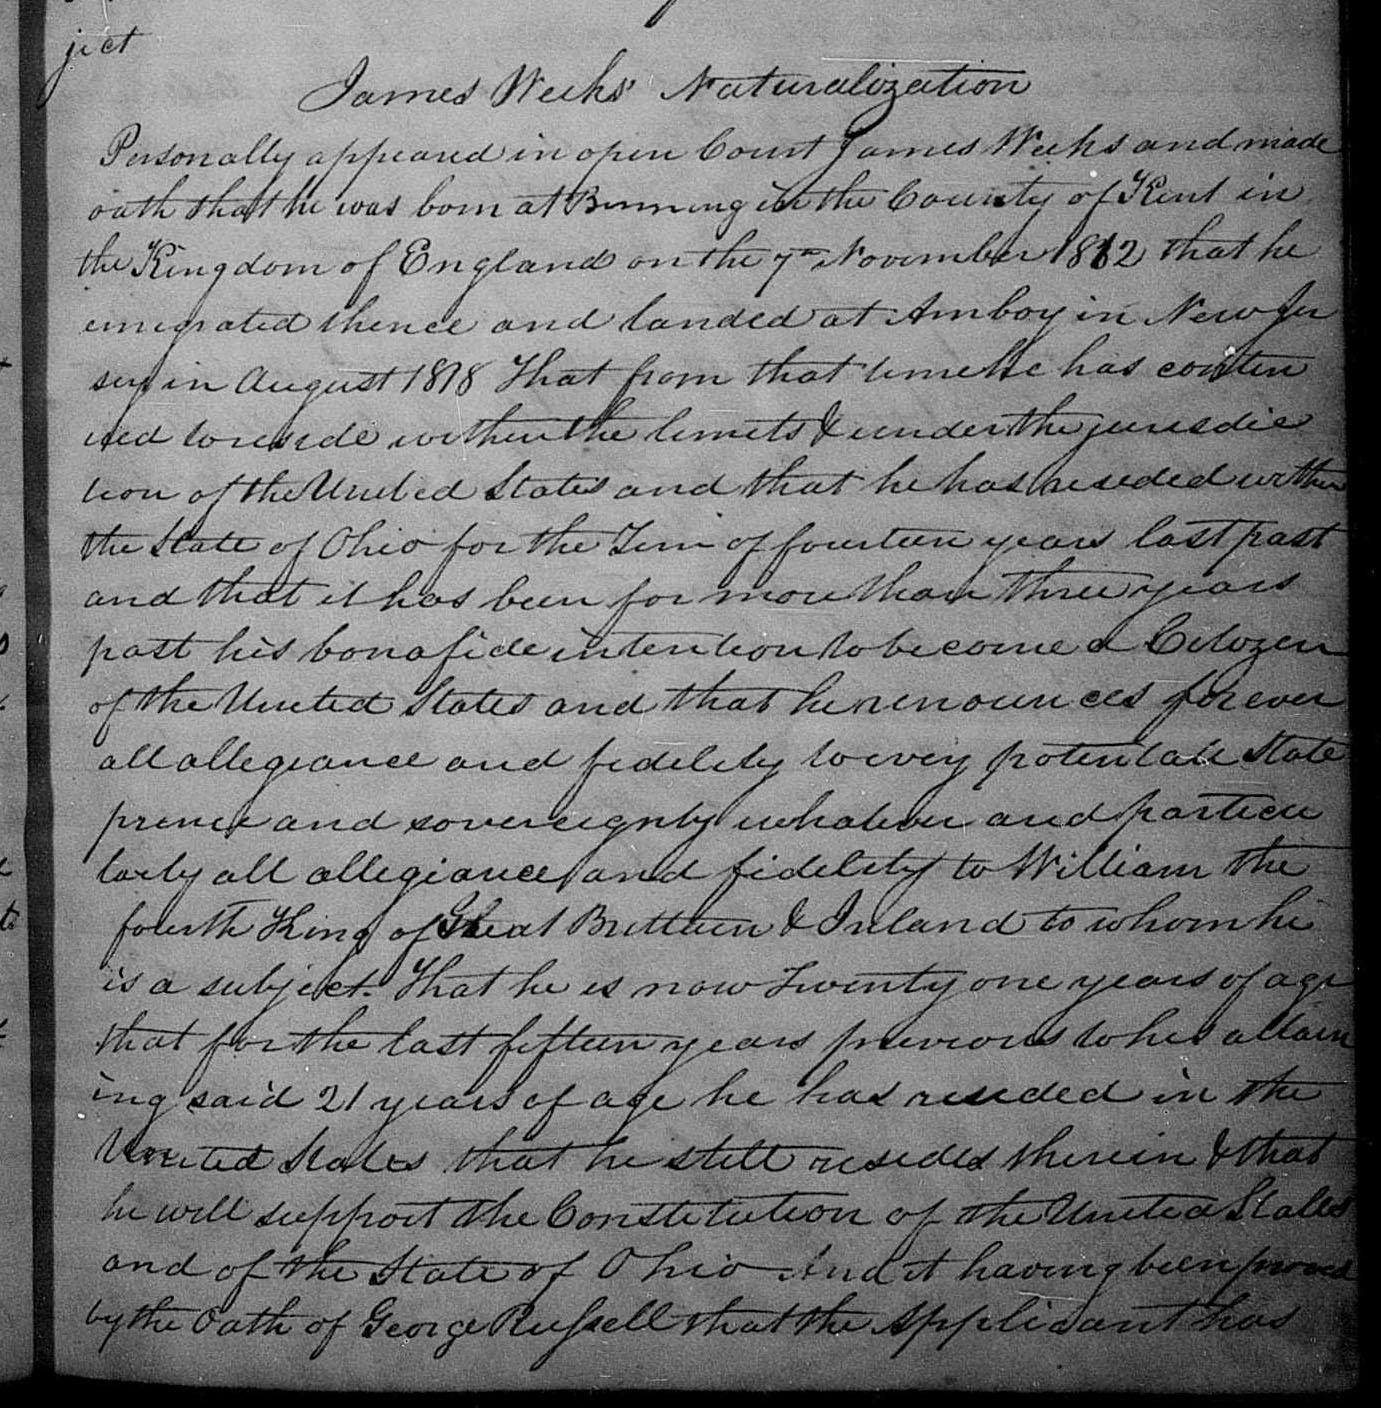 ject
James Weeks' Naturalization
Personally appeared in open Court James Weeks and made
oath that he was born at Binning in the County of Kent in
the Kingdom of England on the 7th November 1812 that he
emigrated thence and landed at Amboy in New Jer
sey in August 1818 That from that time he has contin
ued to reside within the limits & under the jurisdic
tion of the United States and that he has resided within
the State of Ohio for the Term of fourteen years last past
and that it has been for more than three years
past his bonafide intention to become a Citizen
of the United States and that he renounces forever
all allegiance and fidelity to every potentate State
prince and sovereignty whatever and particu
larly all allegiance and fidelity to William the
fourth King of Great Brittain & Ireland to whom he
is a subject. That he is now Twenty one years of age
that for the last fifteen years previous to his attain
ing said 21 years of age he has resided in the
United States that he still resides therein & that
he will support the Constitution of the United States
and of the State of Ohio And it having been proved
by the Oath of George Russell that the Applicant has